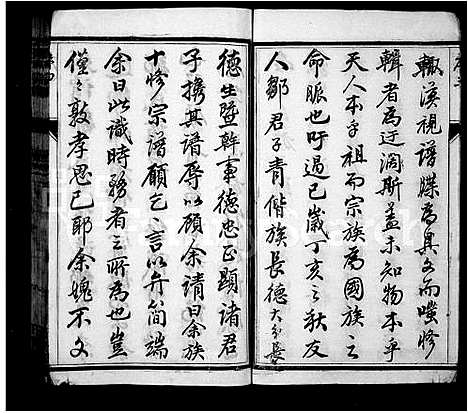 輒漠視譜牒為具文而嗤修
輯者為迂闊斯蓋未知物本乎
天人本乎祖而宗族為國族之
命脈也吁過已歲丁亥之秋友
人鄒君子青偕族長德大分長
德生暨幹事德忠正顯諸君
子攜其譜辱以顧余請曰余族
十修宗譜願乞之言以弁簡端
余曰此識時務者之所為也豈
僅之敦孝思已耶余媿不文